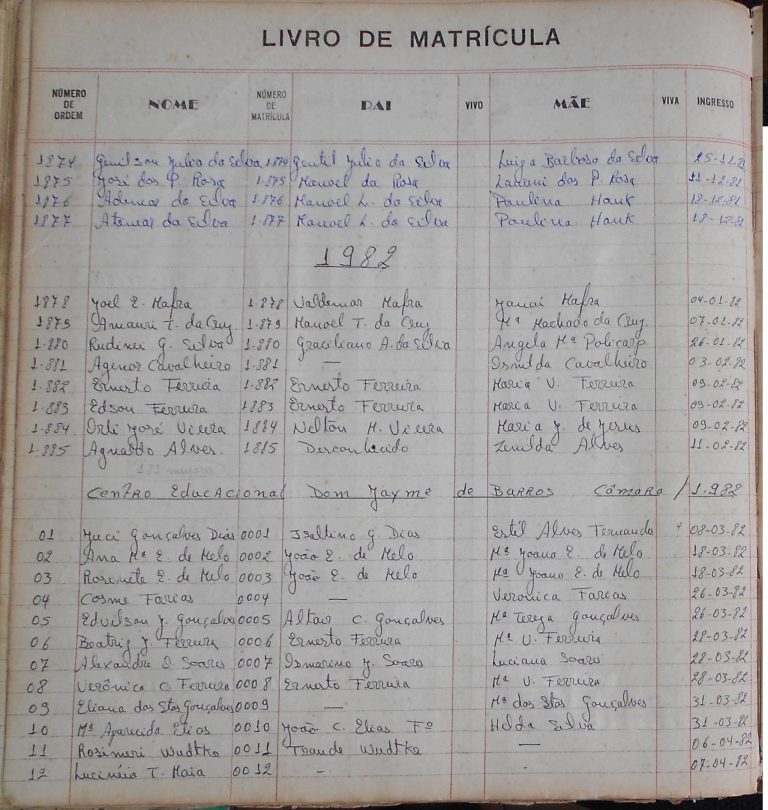 LIVRO DE MATRÍCULA
NÚMERO DE ORDEM NOME NÚMERO DE MATRÍCULA PAI VIVO MÃE VIVA INGRESSO
1874 Genilson Julio da Silva 1.874 Gentil Julio da Silva Luiza Barbosa da Silva 25-11-81
1875 José dos P. Rosa 1.875 Manoel da Rosa dos P. Rosa 11-12-81
1876 Ademar da Silva 1.876 Manoel L. da Silva Paulina Hank 18-12-81
1877 Atemar da Silva 1.877 Manoel L. da Silva Paulina Hank 18-12-81
1982
1878 Joel E. Mafra 1.878 Valdemar Mafra Mafra 04-01-82
1879 Amauri T. da Cruz 1.879 Manoel T. da Cruz Mª Machado da Cruz. 07-01-82
1.880 Rudinei G. Silva 1.880 Graciliano A. da Silva Angela Mª Policarp. 26-01-82
1.881 Agenor Cavalheiro 1.881 — Isnilda Cavalheiro 03-02-82
1.882 Ernesto Ferreira 1.882 Ernesto Ferreira Maria V. Ferreira 09-02-82
1.883 Edson Ferreira 1883 Ernesto Ferreira Maria V. Ferreira 09-02-82
1.884 Orli José Vieira 1884 Nelton M. Vieira Maria J. de Jesus 09-02-82
1.885 Agnaldo Alves. 1885 Desconhecido Zenilda Alves 11-02-82
Centro Educacional Dom Jayme de BARROS Câmara / 1.982
01 Juci Gonçalves Dias 0001 Isaltino G. Dias Estil Alves Fernando 08-03-82
02 Ana Mª E. de Melo 0002 João E. de Melo Mª Joana E. de Melo 18-03-82
03 Rosenete E. de Melo 0003 João E. de Melo Mª Joana E. de Melo 18-03-82
04 Cosme Farias 0004 — Verônica Farias 26-03-82
05 Edvilson J. Gonçalves 0005 Altair C. Gonçalves Mª Tereza Gonçalves 26-03-82
06 Beatriz J. Ferreira 0006 Ernesto Ferreira Mª V. Ferreira 28-03-82
07 Alexandre I. Soares 0007 Ismarino J. Soares Luciana Soares 28-03-82
08 Verônica C. Ferreira 0008 Ernesto Ferreira Mª V. Ferreira 28-03-82
09 Eliana dos Stos Gonçalves 0009 — Mª dos Stos Gonçalves 31-03-82
10 Mª Aparecida Elias 0010 João C. Elias Fº Helda Silva 31-03-82
11 Rosimeri Wudtke 0011 Traude Wudtke — 06-04-82
12 Lucinéia T. Maia 0012 - - 07-04-82